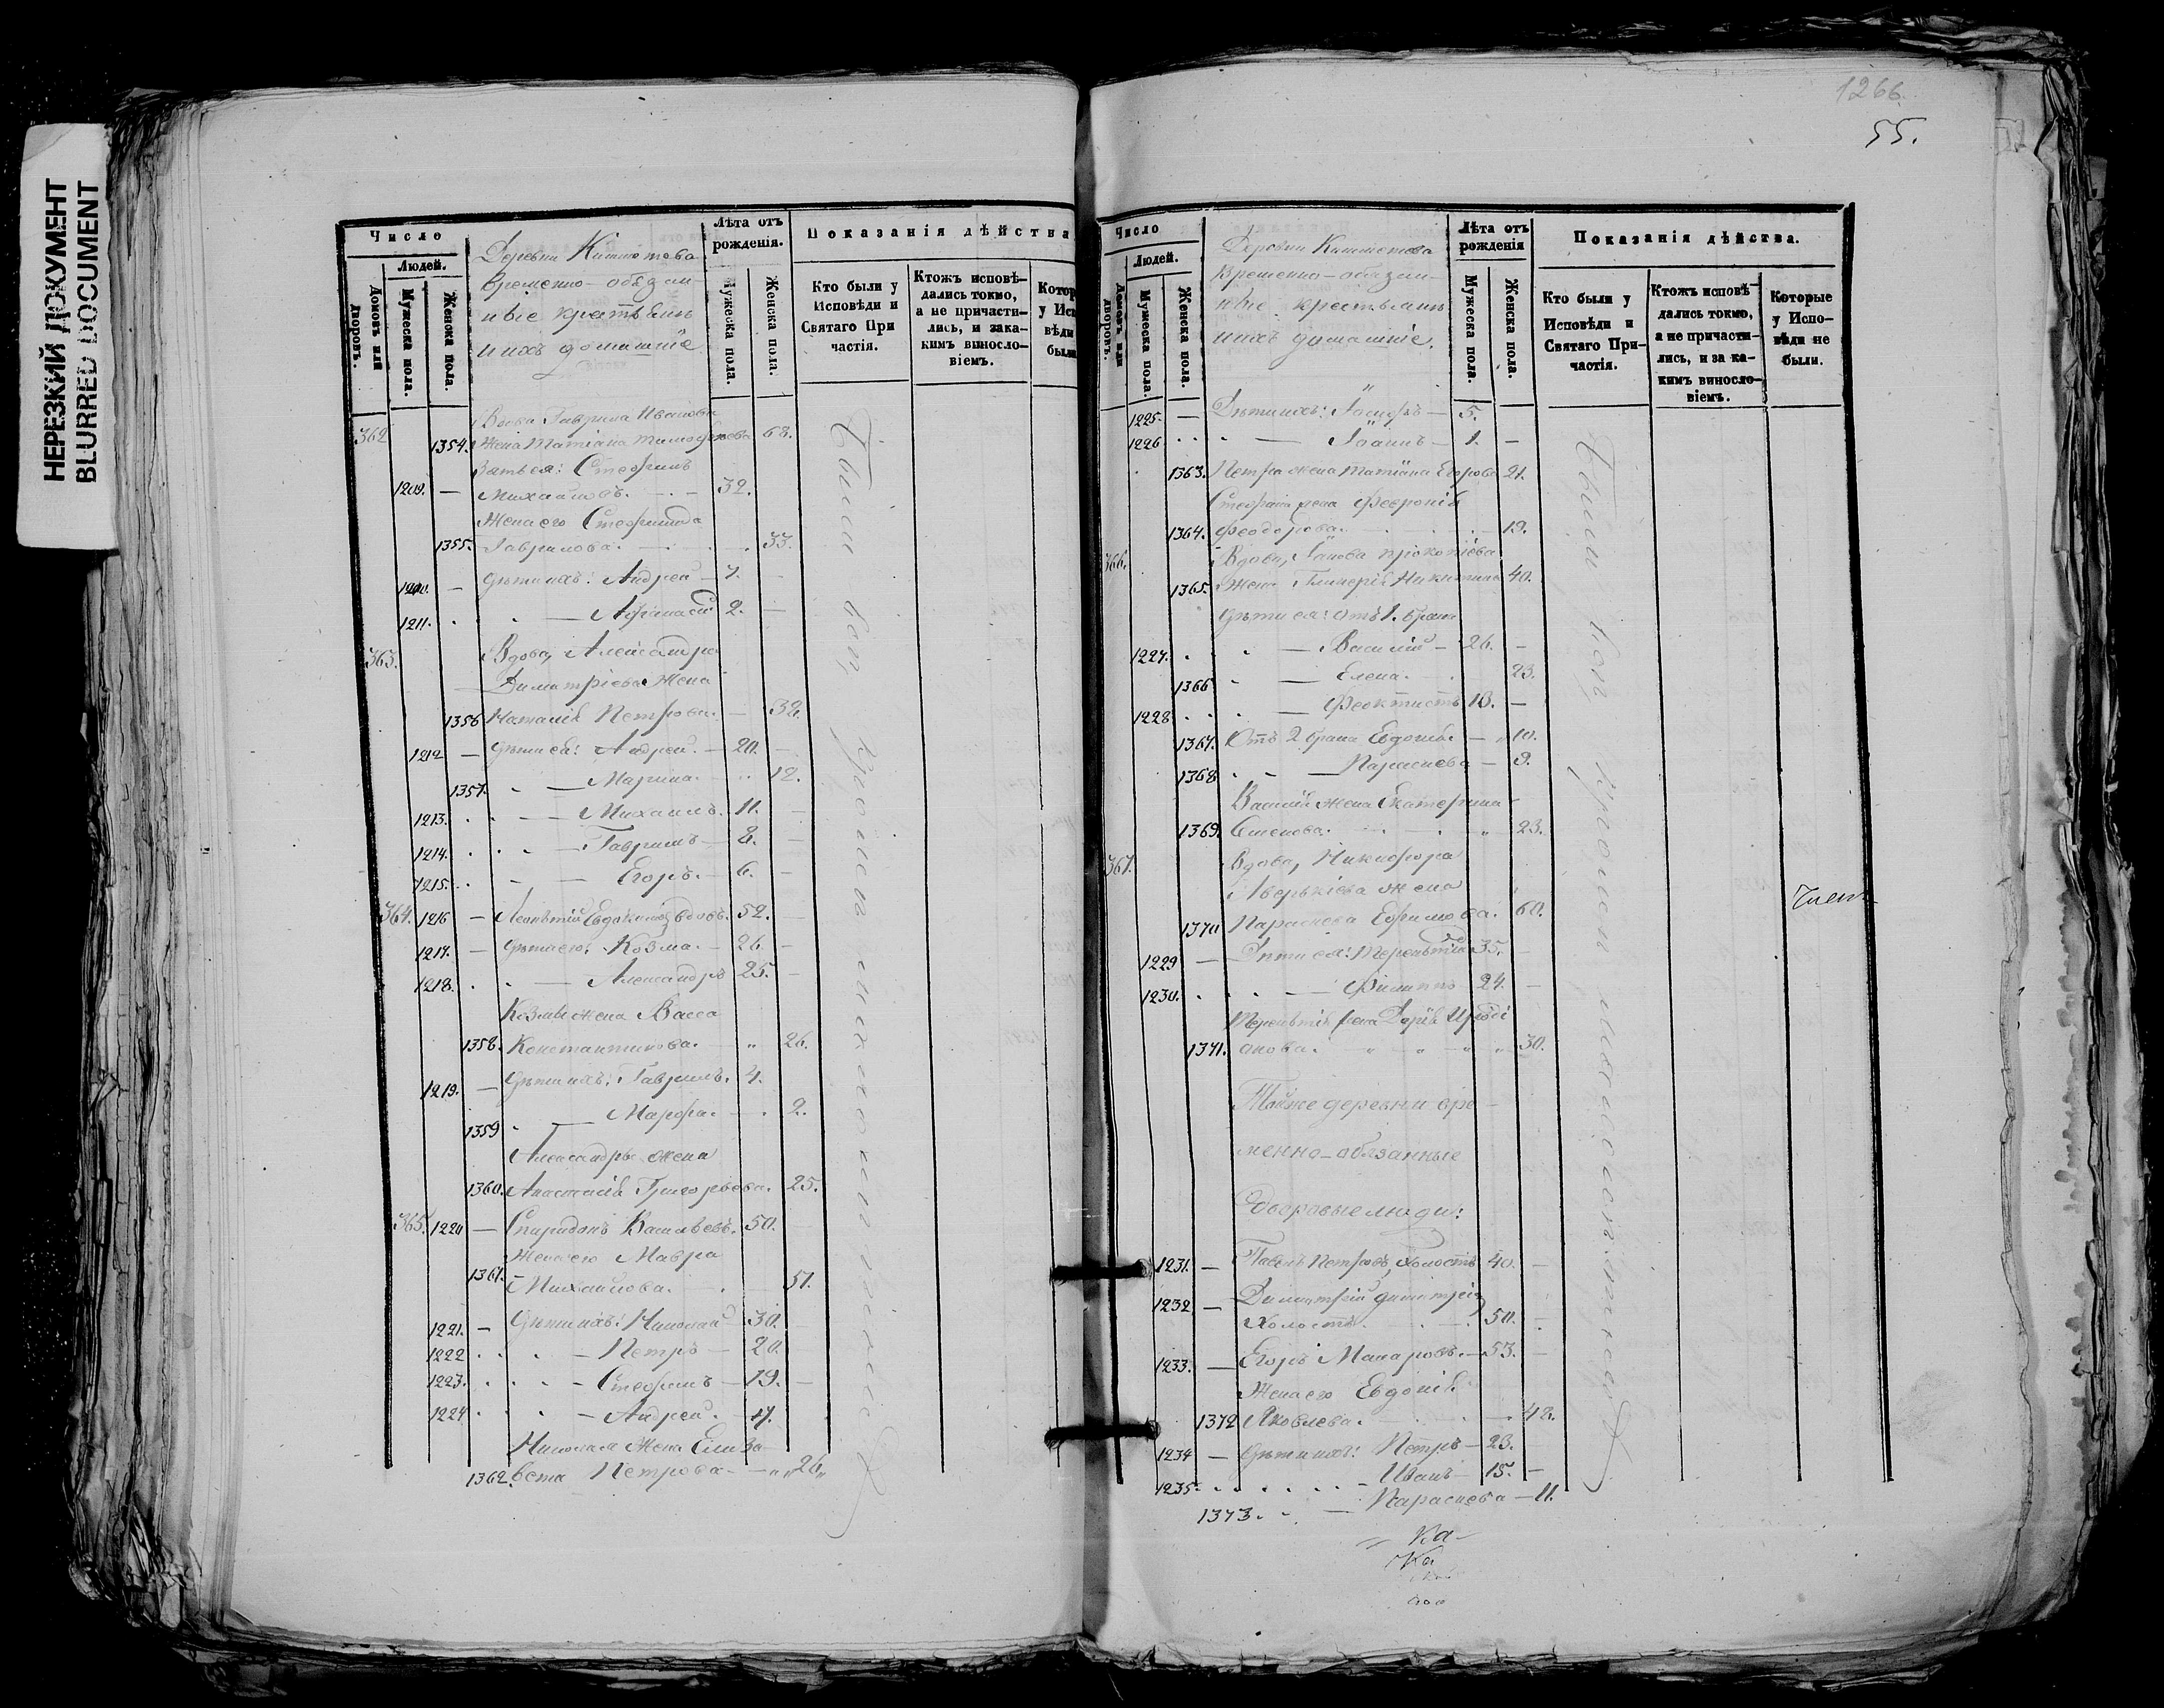 НЕРЕЗКИЙ ДОКУМЕНТ
BLURRED DOCUMENT
Число
Людей.
Домовъ или дворовъ.
Мужеска пола.
Женска пола.
Деревни
Временно-
ихъ домашніе
Лѣта отъ рожденія.
Мужеска пола.
Женска пола.
Показанія дѣйства
Кто были у Исповѣди и Святаго При частія.
Ктожъ исповѣ- дались токмо, а не причасти- лись, и зака- кимъ виносло- віемъ.
362 Вдова Гаврила Иванова
1354. Жена Татіана Тимофеева 68.
Зять ея: Стефанъ
1209. — Михайловъ. 32.
Жена его Стефанида
1355. Гаврилова. 33.
1210. — Дѣти ихъ: Андрей 7.
1211. Афанасій 2.
363. Вдова, Александра
Димитріева Жена
1356 Наталія Петрова. 38.
1212 — Дѣти ея: Андрей. 20.
1357. Марина. 12.
1213. Михаилъ. 11.
1214. Гавріилъ 8.
1215. Егоръ. 6.
364. 1216 — Леонтій Евдокимовъ вдовъ. 52.
1217. — Дѣти его: Козма. 26.
1218. Александръ 25.
Козмы жена Васса
1358. Константинова. 26.
1219. — Дѣти ихъ: Гавріилъ. 4.
1359 Марфа. 2.
Александра жена
1360. Анастасія Григорьева. 25.
365. 1220 — Спиридонъ Васильевъ. 50.
Жена его Мавра
1361. Михайлова. 51.
1221. — Дѣти ихъ: Николай 30.
1222 Петръ 20.
1223. Стефанъ 19.
1224 Андрей. 17.
Николая Жена Елиза
1362. вета Петрова. 26.
1266.
55.
Число
Людей.
Домовъ или дворовъ.
Мужеска пола.
Женска пола.
Деревни
Временно-обязан-
ные крестьяне
ихъ домашніе.
Лѣта отъ рожденія
Мужеска пола.
Женска пола.
Показанія дѣйства.
Кто были у Исповѣди и Святаго При- частія.
Ктожъ исповѣ- дались токмо, а не причасти- лись, и за ка- кимъ виносло- віемъ.
Которые у Испо- вѣди не были.
1225. — Дѣти ихъ: Іосифъ 5.
1226 Іоаннъ 1.
1363. Петра жена Татіана Егорова 21.
Стефана жена Февронія
1364. Феодорова. 19.
366. Вдова, Іакова Прокопіева
1365. Жена Гликерія Никитина 40.
Дѣти ея: отъ 1. брака
1227. Василій 26.
1366 Елена. 23.
1228 Феоктистъ 13.
1367. Отъ 2 брака Евдокія 10.
1368 Параскева 9.
Василія Жена Екатерина
1369. 23.
367. Вдова, Никифора
Аверькіева жена
1370 Параскева Ефимова. 60.
1229 — Дѣти ея: Терентій 35.
1230. Филиппъ 24.
Терентія жена Дарія Ироді
1371. онова. 30.
Тойже деревни вре
менно-обязанные
дворовые люди:
1231. — Павелъ Петровъ, холостъ 40.
1232 — Димитрій Димитрі
Холостъ. 50.
1233. — Егоръ Макаровъ. 53.
Жена его Евдокія
1372 Яковлева. 48.
1234 — Дѣти ихъ: Петръ 23.
1235. Иванъ 15.
1373. Параскева 11.
Ка
Ка